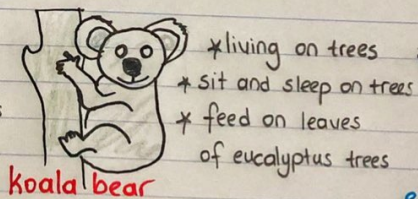 *living on trees
* sit and sleep on trees
* feed on leaves
of eucalyptus trees
koala bear